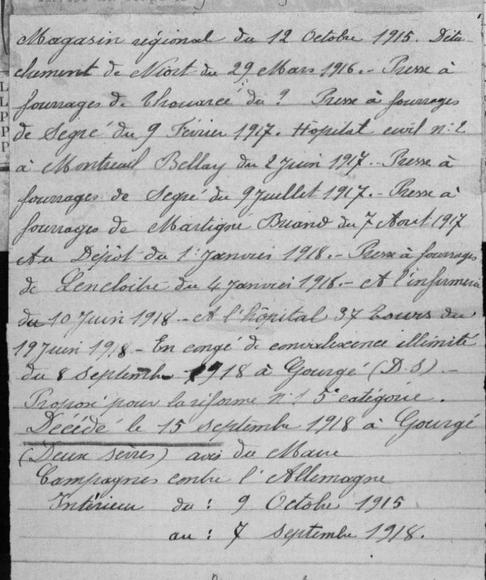 Magasin régional du 12 Octobre 1915. Déta
chement de Niort du 29 Mars 1916. - Presse à
fourrages de Thouarcé du ? Presse à fourrages
de Segré du 9 Février 1917. Hôpital civil n: 2
à Montreuil Bellay du 2 Juin 1917. - Presse à
fourrages de Segré du 9 Juillet 1917. - Presse à
fourrages de Martigné Briand du 7 Aout 1917
Au Dépôt du 1er Janvier 1918. - Presse à fourrages
de Lencloitre du 4 Janvier 1918 - A l'infirmerie
du 10 Juin 1918 - A l'hôpital 37 Tours du
19 Juin 1918 - En congé de convalexence illimité
du 8 septembre 1918 à Gourgé (D.S) -
Proposé pour la réforme n: 1 5e catégorie.
Décédé le 15 septembre 1918 à Gourgé
(Deux sèvres) avis du Maire
Campagnes contre l'Allemagne
Intérieur du: 9 Octobre 1915
au: 7 septembre 1918.